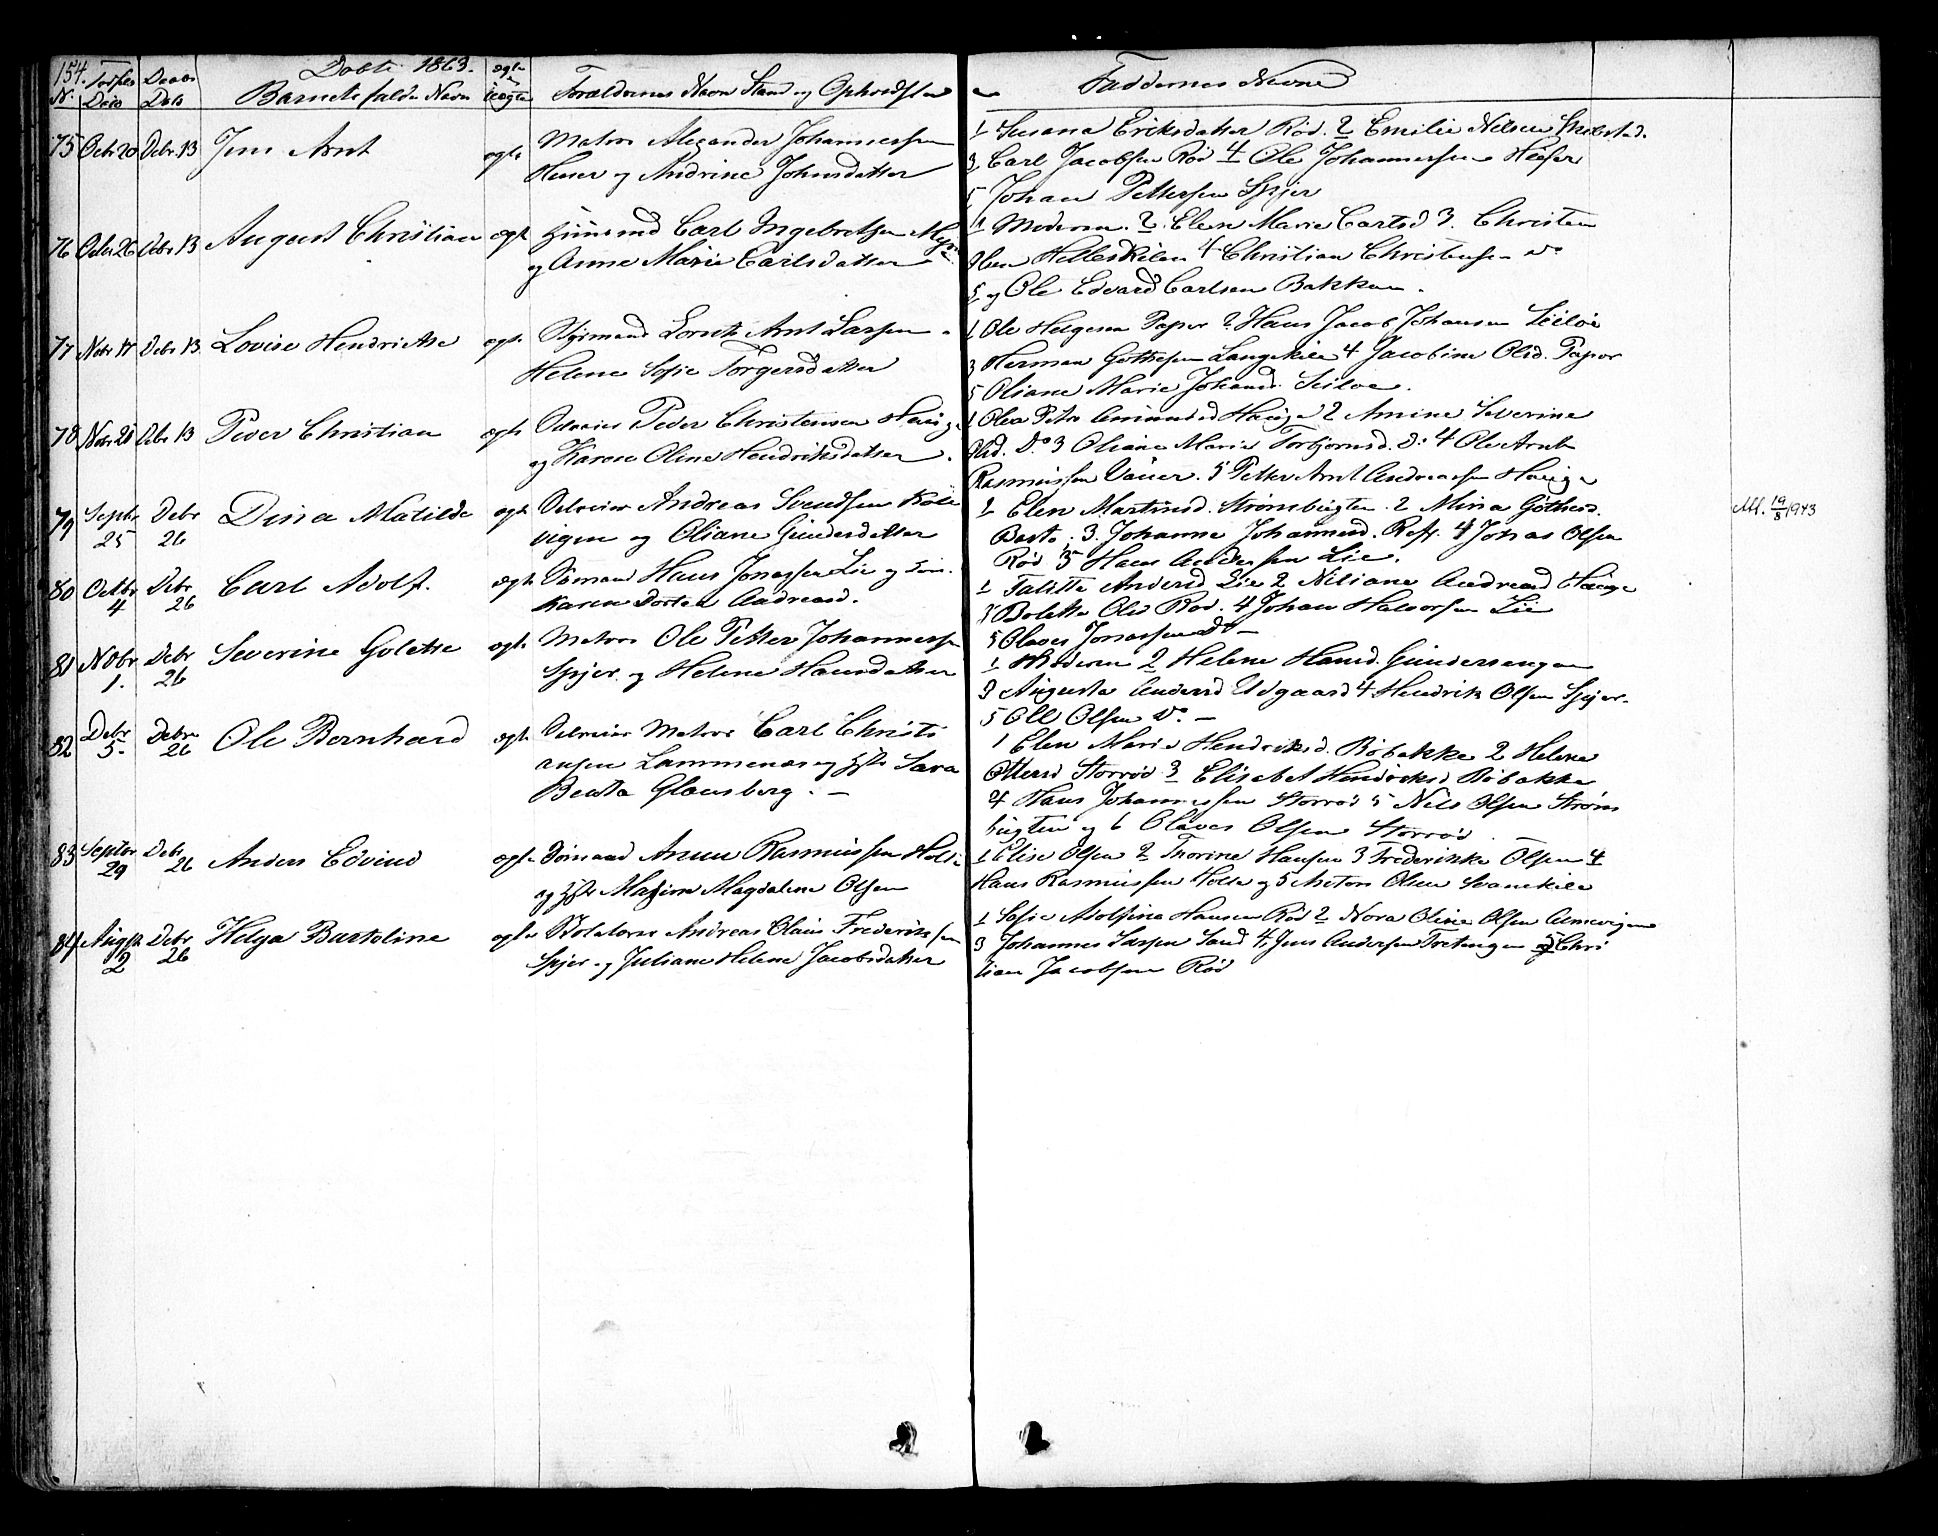 154. Døbte 1863.
N. Fødsels Dato Daabs Dato Barnets fulde Navn ægte uægte Forældrenes Navn Stand og Opholdsted Faddernes Navne
75 Octr 20 Debr. 13 Jens Arnt ægte Matros Alexander Johannessen
Huser og Andrine Johnsdatter
1 Susana Eriksdatter Rød. 2 Emilie Nilsen
3 Carl Jacobsen Rød 4 Ole Johannessen
5 Johan Pettersen Spjer
76 Octr 26 Debr 13 August Christian ægte Huusmd Carl Ingebretsen
og Anne Marie Carlsdatter
1 Moderen. 2. Elen Marie Carlsd 3. Christen
Olsen Helleskilen 4 Christian Christensen do
5 og Ole Edvard Carlsen Bakken.
77 Nobr 17 Debr 13 Lovise Hendriette ægte Styrmand Arnt Larsen
Helene Sofie Torgersdatter
1 Ole Helgesen Paper 2 Hans Jacob Johansen
3 Herman Langekile 4 Jacobine Olsd. Paper
5 Oliane Marie Johansd.
78 Nobr 21 Debr 13 Peder Christian ægte Selveier Peder Christensen Hauge
og Karen Oline Hendriksdatter.
1 Amundsd Hauge 2 Amine Severine
Olsd. Do 3 Oliane Marie Torbjørnsd. Do 4 Ole Arnt
Rasmussen 5 Petter Arnt Andreassen Hauge
79 Septr 25 Debr 26 Dina Matilde ægte Selveier Andreas Svendsen
vigen og Oliane Gundersdatter
1 Elen Martinsd. Strømbugten. 2 Mina
3. Johanne Johannesd. 4 Johas Olsen
Rød 5 Hans Andersen Lie.
80 Octbr 4 Debr 26 Carl Adolf. ægte Sømand Hans Jonassen Lie og
Karen Dortea Andreasd.
1 Talette Andersd Lie 2 Niliane Andreasd Hauge
3 Bolette Olsd Rød. 4 Johan Halvorsen Lie
5 Olaves Jonassen do
81 Nobr 1. Debr 26 Severine Goletse ægte Matros Ole Petter Johannessen
Spjer. og Helene Hansdatter
1 Moderen 2 Helene Hansd. Gundersengen
3 Augusta Andersd Udgaard 4 Hendrik Olsen Spjer.
5 Oll Olsen do.
82 Debr 5. Debr 26 Ole Bernhard ægte Selveier Matros Carl Christi
ansen Lammenæs og Sara
Beata Glansberg.
1 Elen Marie Hendriksd. Bøbakke 2 Helene
Ottersd Storrød 3 Elisabet Hendriksd Bøbakke
4 Hans Johannessen Storrød 5 Nils Olsen Strøm
bugten og 6 Olaves Olsen Storrød
83 Septbr 29 Debr 26 Anders Edvind ægte Sømand Anun Rasmussen Holte
og Maxim Magdalene Olsen
1 Elise Olsen 2 Thorine Hansen 3 Frederikke Olsen 4
Hans Rasmussen Holte og 5 Anton Olsen Svanekile
84 August 2 Debr 26 Helga Bartoline ægte Andreas Olaus Frederiksen
Spjer. og Juliane Helene Jacobsdatter
1 Sofie Adolfine Hansen Rød 2 Nora Oline Olsen
3 Johannes Larsen Sand 4. Jens Andersen og 5 Chris
tian Jacobsen Rød
Att. 19/8 1943